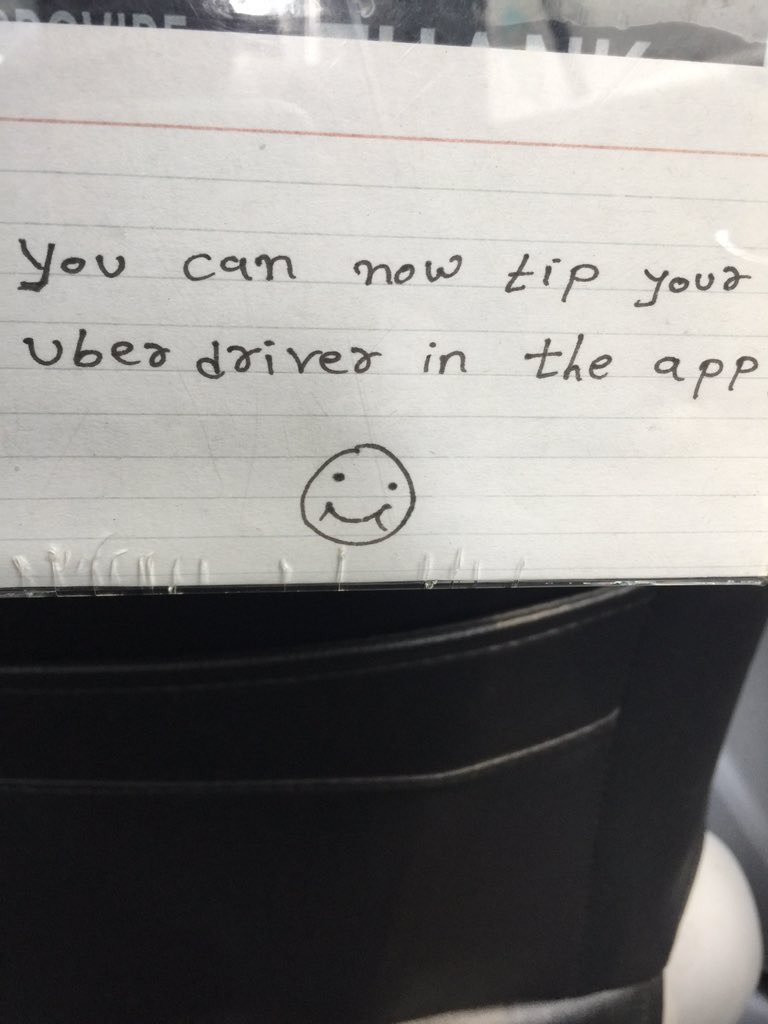 You can now tip your
uber driver in the app